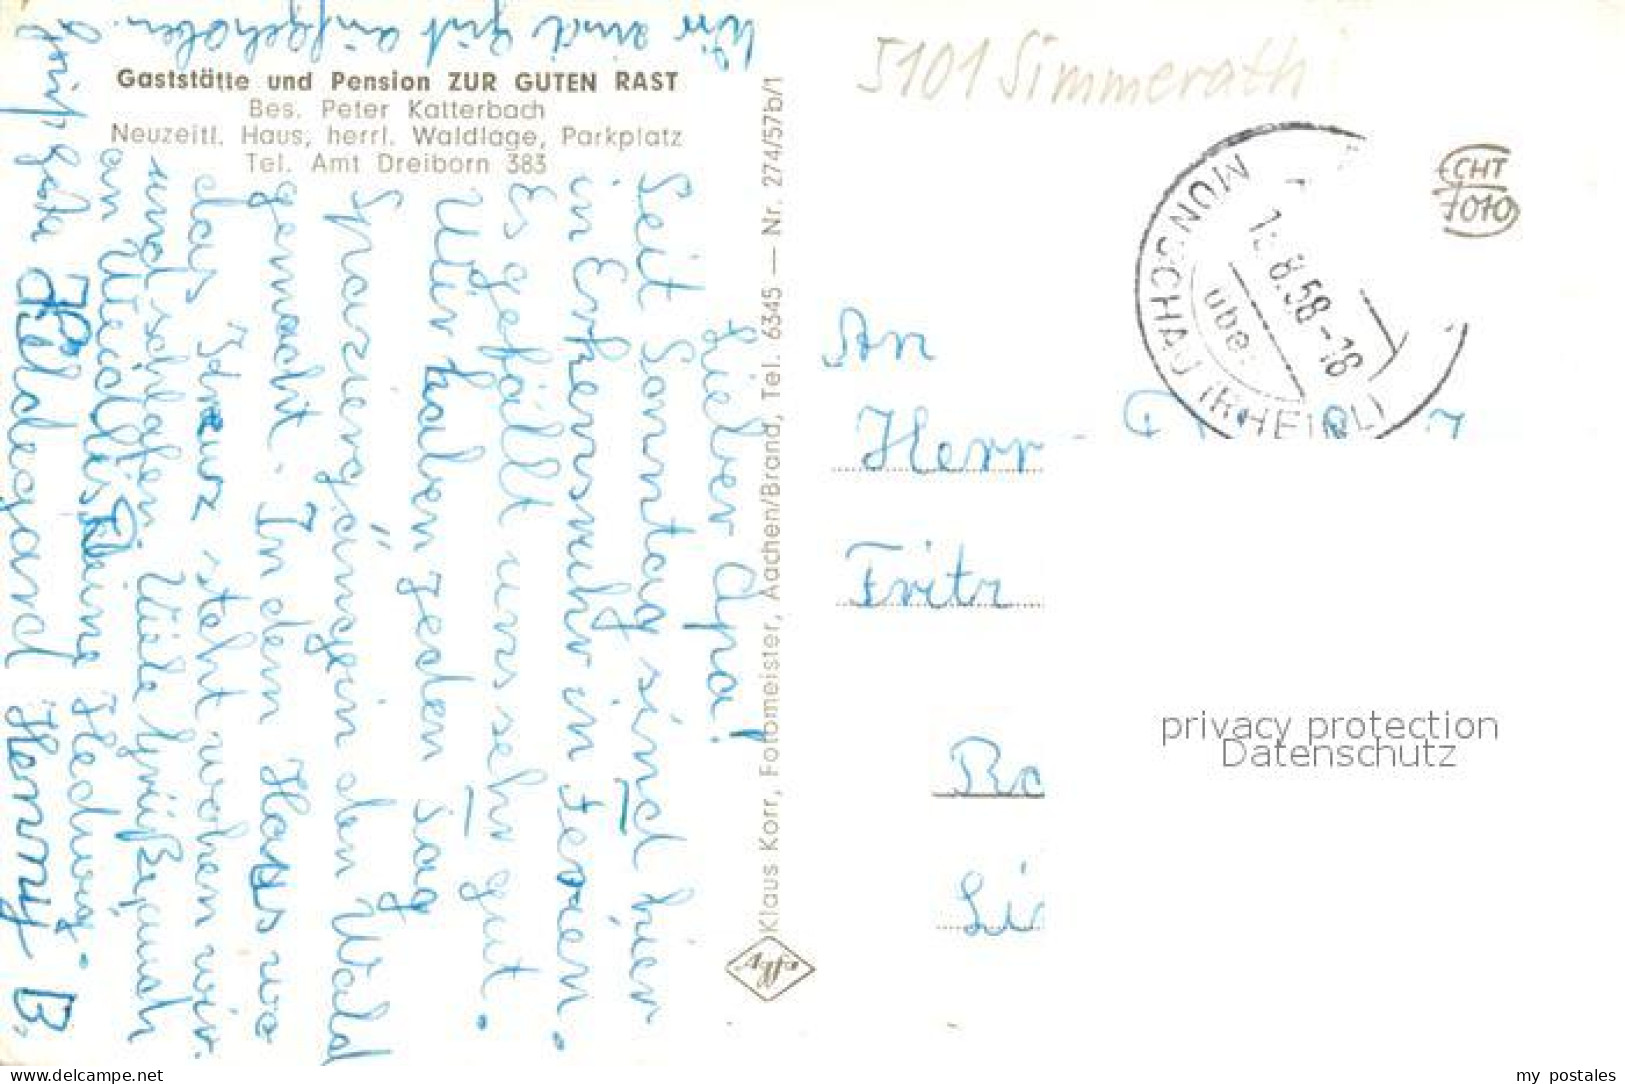 Wir sind gut aufgehoben.
Gaststätte und Pension ZUR GUTEN RAST
Bes. Peter Katterbach
Neuzeitl. Haus, herrl. Waldlage, Parkplatz
Tel. Amt Dreiborn 383
Lieber Opa!
Seit Sonntag sind hier
in Erkensruhr in Ferien.
Es gefällt uns sehr gut.
Wir haben jeden Tag
Spaziergänge in den Wald
gemacht. In dem Haus wo
das Kreuz steht wohen wir
und schlafen. Viele Grüße auch
an
Deine Hedwig.
Hildegard Henny B.
Klaus Korr, Fotomeister, Aachen/Brand, Tel. 6345 — Nr. 274/57b/1
5101 Simmerath
ECHT
7010
MONSCHAU (RHEINL)
8.58-18
über
An
Herr
Fritz
privacy protection
Datenschutz
delcampe.net
my_postales